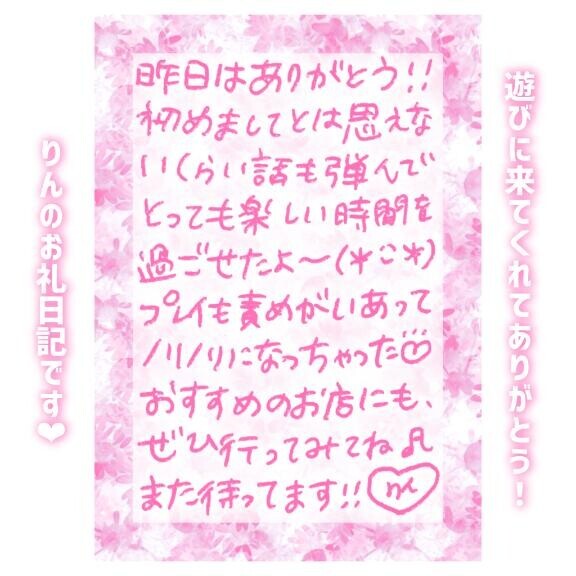 遊びに来てくれてありがとう！
昨日はありがとう!!
初めましてとは思えな
いくらい話も弾んで
とっても楽しい時間を
過ごせたよ〜(*ˊᵕˋ*)
プレイも責めがいあって
ノリノリになっちゃった♡
おすすめのお店にも、
ぜひ行ってみてね♫
また待ってます!!
りん
りんのお礼日記です❤